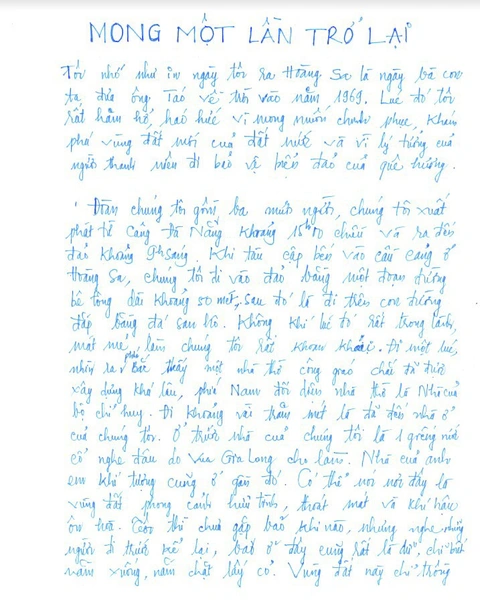 MONG MỘT LẦN TRỞ LẠI
Tôi nhớ như in ngày tôi ra Hoàng Sa là ngày bà con
ta đưa ông Táo về trời vào năm 1969. Lúc đó tôi
rất hăm hở, háo hức vì mong muốn chinh phục, khám
phá vùng đất mới của đất nước và vì lý tưởng của
người thanh niên đi bảo vệ biển đảo của quê hương.
Đoàn chúng tôi gồm ba mươi người, chúng tôi xuất
phát từ Cảng Đà Nẵng khoảng 15h00 chiều và ra đến
đảo khoảng 9h sáng. Khi tàu cập bến vào cầu cảng ở
Hoàng Sa, chúng tôi đi vào đảo bằng một đoạn đường
bê tông dài khoảng 50 mét, sau đó là đi trên con đường
đắp bằng đá san hô. Không khí lúc đó rất trong lành,
mát mẻ làm chúng tôi rất khoan khoái. Đi một lúc,
nhìn ra phía Bắc thấy một nhà thờ công giáo chắc đã được
xây dựng khá lâu, phía Nam đối diện nhà thờ là Nhà của
bộ chỉ huy. Đi khoảng vài trăm mét là đã đến nhà ở
của chúng tôi. Ở trước nhà của chúng tôi là 1 giếng nước
cổ nghe đâu do Vua Gia Long cho làm. Nhà của anh
em khí tượng cũng ở gần đó. Có thể nói nơi đây là
vùng đất phong cảnh hữu tình, thoát mát và khí hậu
ôn hòa. thì chưa gặp bão khi nào, nhưng nghe những
người đi trước kể lại, bão ở đây cũng rất là dữ, chỉ biết
nằm xuống, nắm chặt lấy cỏ. Vùng đất này chỉ trồng